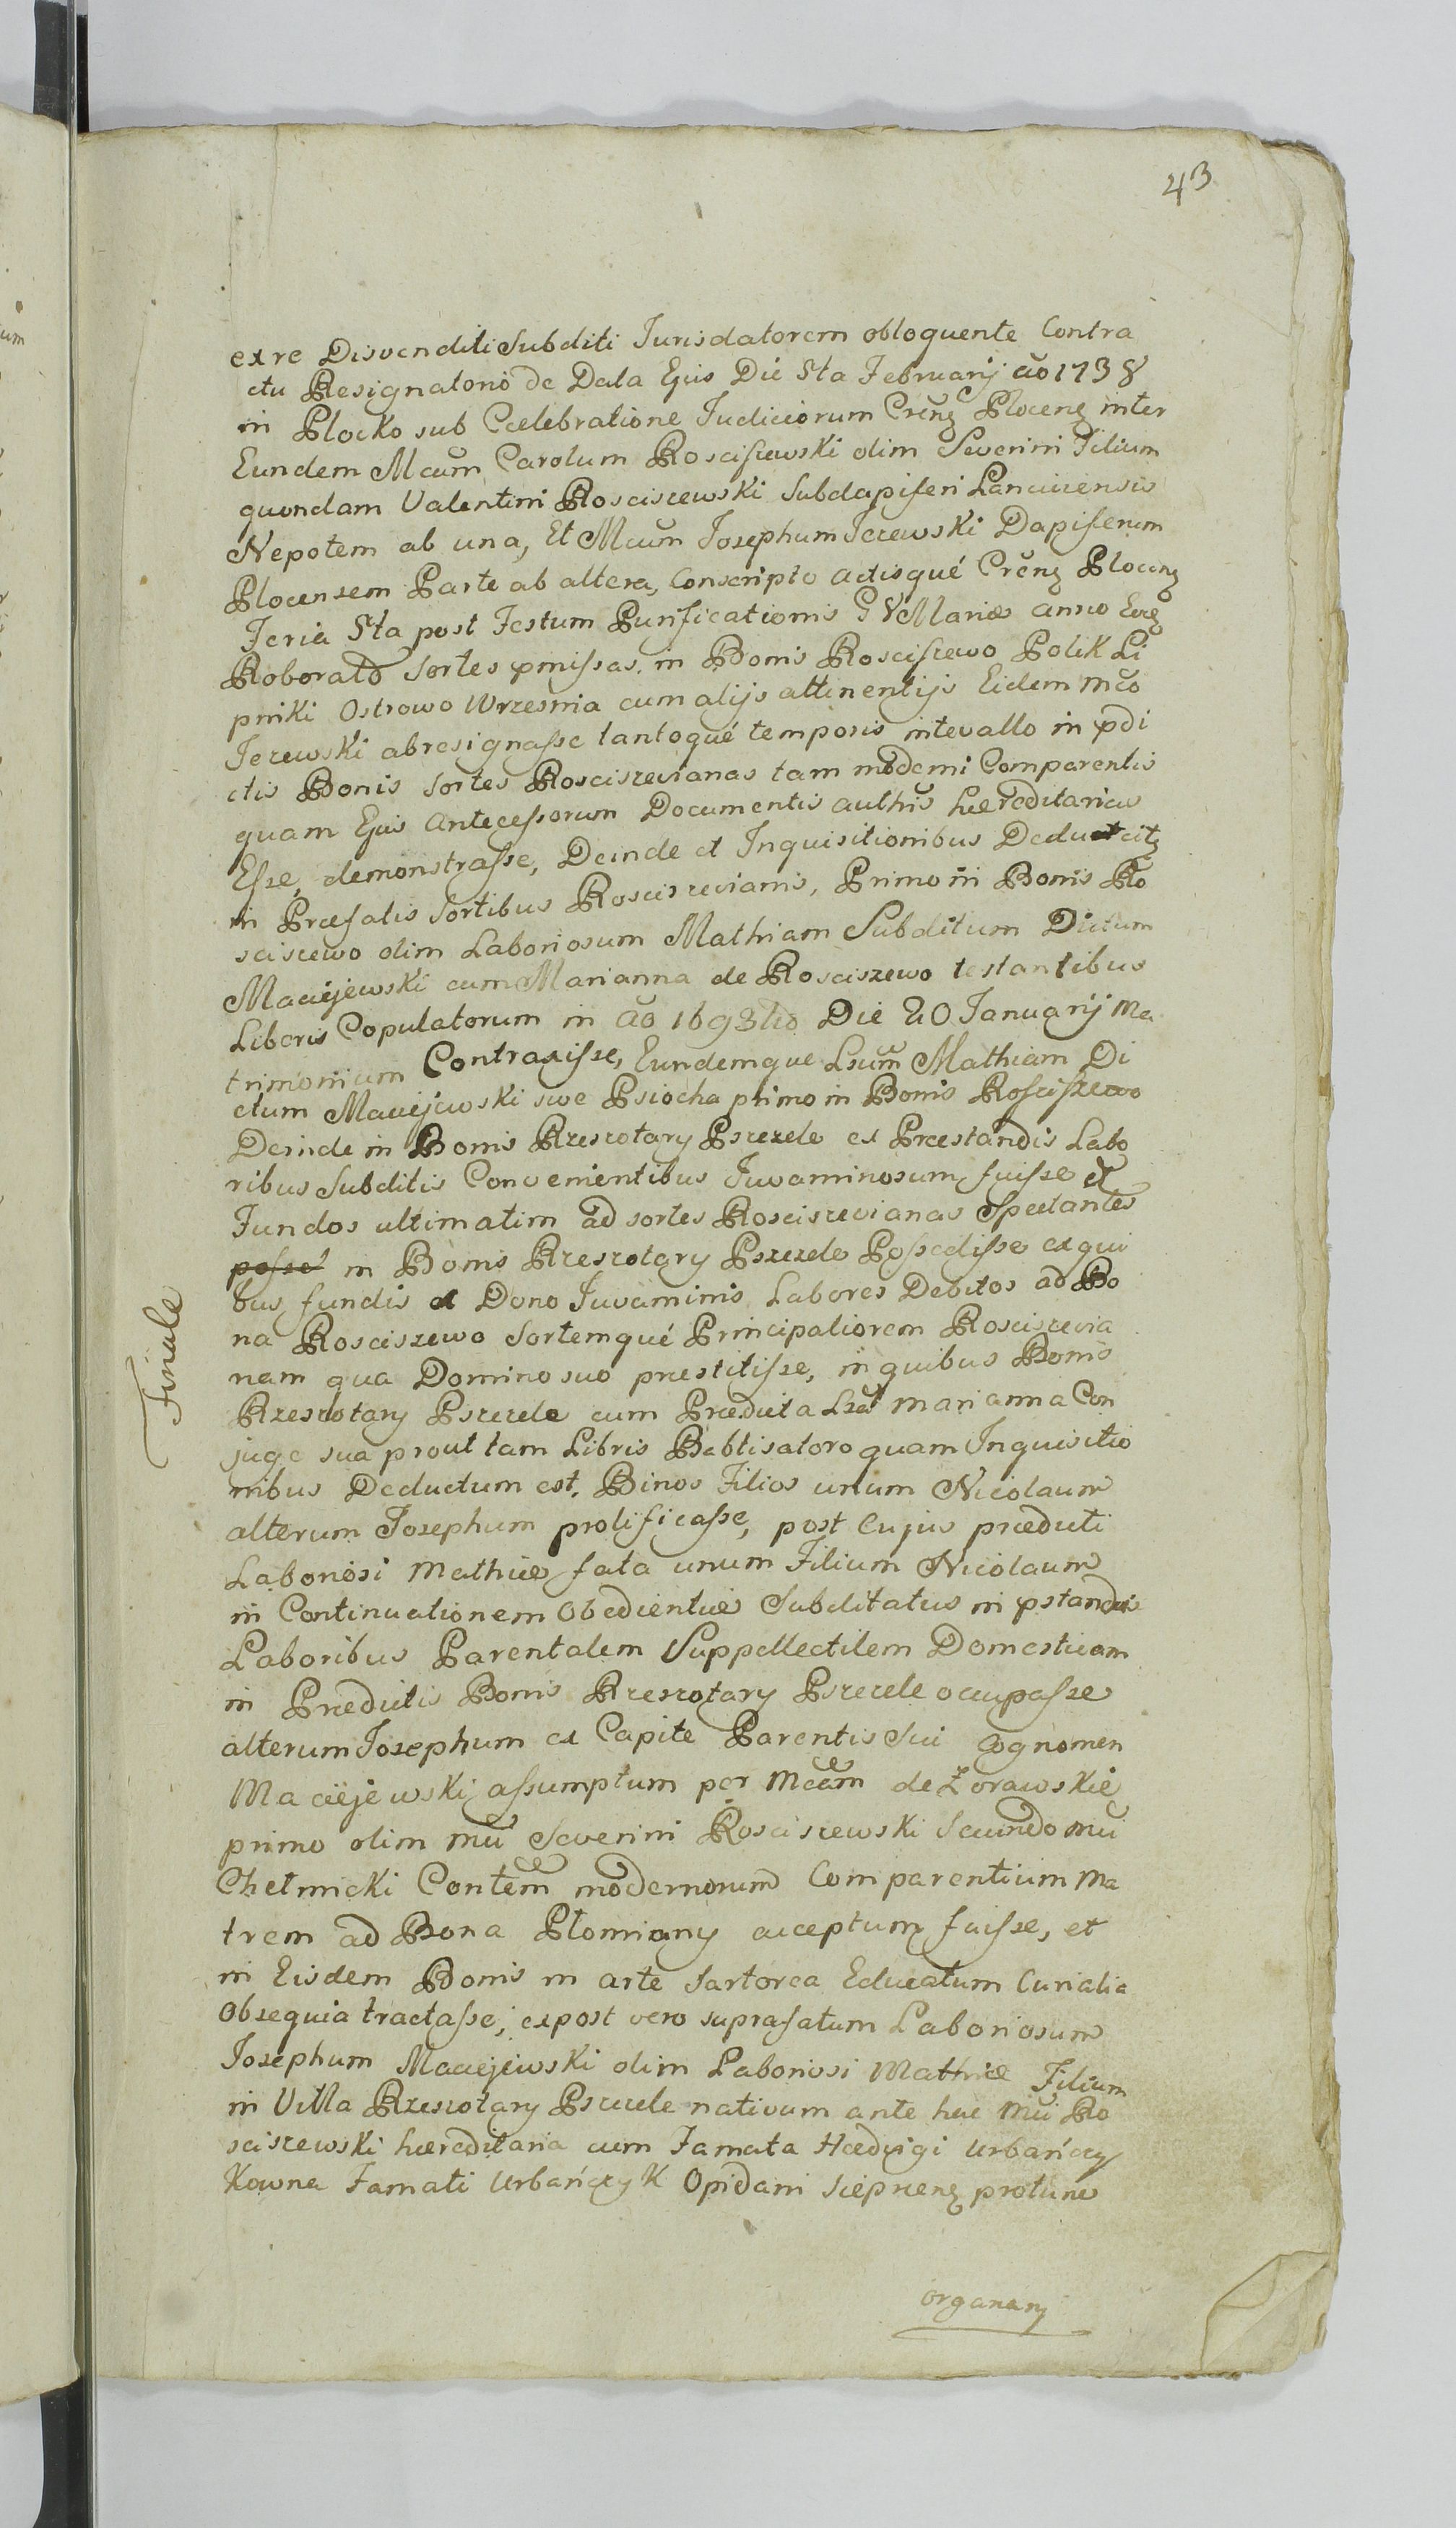 43
ex re Disvenditi Subditi Jurisdatorem obloquente Contra
ctu Resignatorio de Data Ejus Die 5ta Februarij ao 1738
in Plocko sub Caelebratione Judiciorum Crens Plocens inter
Eundem Mcum Carolum Roscissewski olim Severini Filium
quondam Valentini Rosciszewski Subdapiferi Lanciciensis
Nepotem ab una, Et Mcum Josephum Jezewski Dapiferum
Plocensem Parte ab altera, Conscripto actisqué Crens Plocens
Feria 5ta post Festum Purificationis B V Mariae anno Eodem
Roborato Sortes pmissas in Bonis Roscissewo Polik Li
pniki Ostrowo Wrzesnia cum alijs attinentijs Eidem Mco
Jezewski abresignasse tantoqué temporis intevallo in pdi
ctis Bonis Sortes Rosciszevianas tam moderni Comparentis
quam Ejus Antecessorum Documentis authis haereditarias
Esse, demonstrasse, Deinde et Inquisitionibus Deducit
in Praefatis Sortibus Rosciszevianis, Primo in Bonis Ro
sciszewo olim Laboriosum Mathiam Subditum Dictum
Maciejewski cum Marianna de Rosciszewo testantibus
Liberis Copulatorum in ao 1693tio Die 20 Januarij Ma
trimonium Contraxisse, Eundemque Lsum Mathiam Di
ctum Maciejewski sive Psiocha primo in Bonis Roscissewo
Deinde in Bonis Rzeszotary Pszczele ex Praestandis Labo
ribus Subditis Convenientibus Juvaminosum fuisse et
Fundos ultimatim ad sortes Rosciszevianas Spectantes
posse in Bonis Rzeszotary Pszczele Possedisse ex qui
bus fundis et Dono Juvaminis Labores Debitos ad Bo
na Rosciszewo Sortemqué Principaliorem Rosciszevia
nam qua Domino suo praestitisse, in quibus Bonis
Rzeszotary Pszczele cum Praedicta Lsa Marianna Con
juge sua prout tam Libris Babtisatoro quam Inquisitio
nibus Deductum est, Binos Filios unum Nicolaum
alterum Josephum prolificasse, post Cujus praedicti
Laboriosi Mathiae fata unum Filium Nicolaum
in Continuationem Obedientiae Subditatus in pstandis
Laboribus Parentalem Suppellectilem Domesticam
in Praedictis Bonis Rzeszotary Pszczele occupasse
alterum Josephum ex Capite Parentis Sui Cognomen
Maciejewski assumptum per Mcam de Zorawskie
primo olim Mci Severini Rosciszewski Secundo Mci
Chełmicki Contem modernorum Comparentium Ma
trem ad Bona Płomiany acceptum fuisse, et
in Eisdem Bonis in arte Sartorea Educatum Curialia
Obsequia tractasse, expost vero suprafatum Laboriosum
Josephum Maciejewski olim Laboriosi Mathiae Filium
in Villa Rzeszotary Pszczele nativum ante hac Mci Ro
sciszewski haereditaria cum Famata Haedvigi Urbańczy
kowna Famati Urbańczyk Opidani Sieprcens protunc
organary
Finale